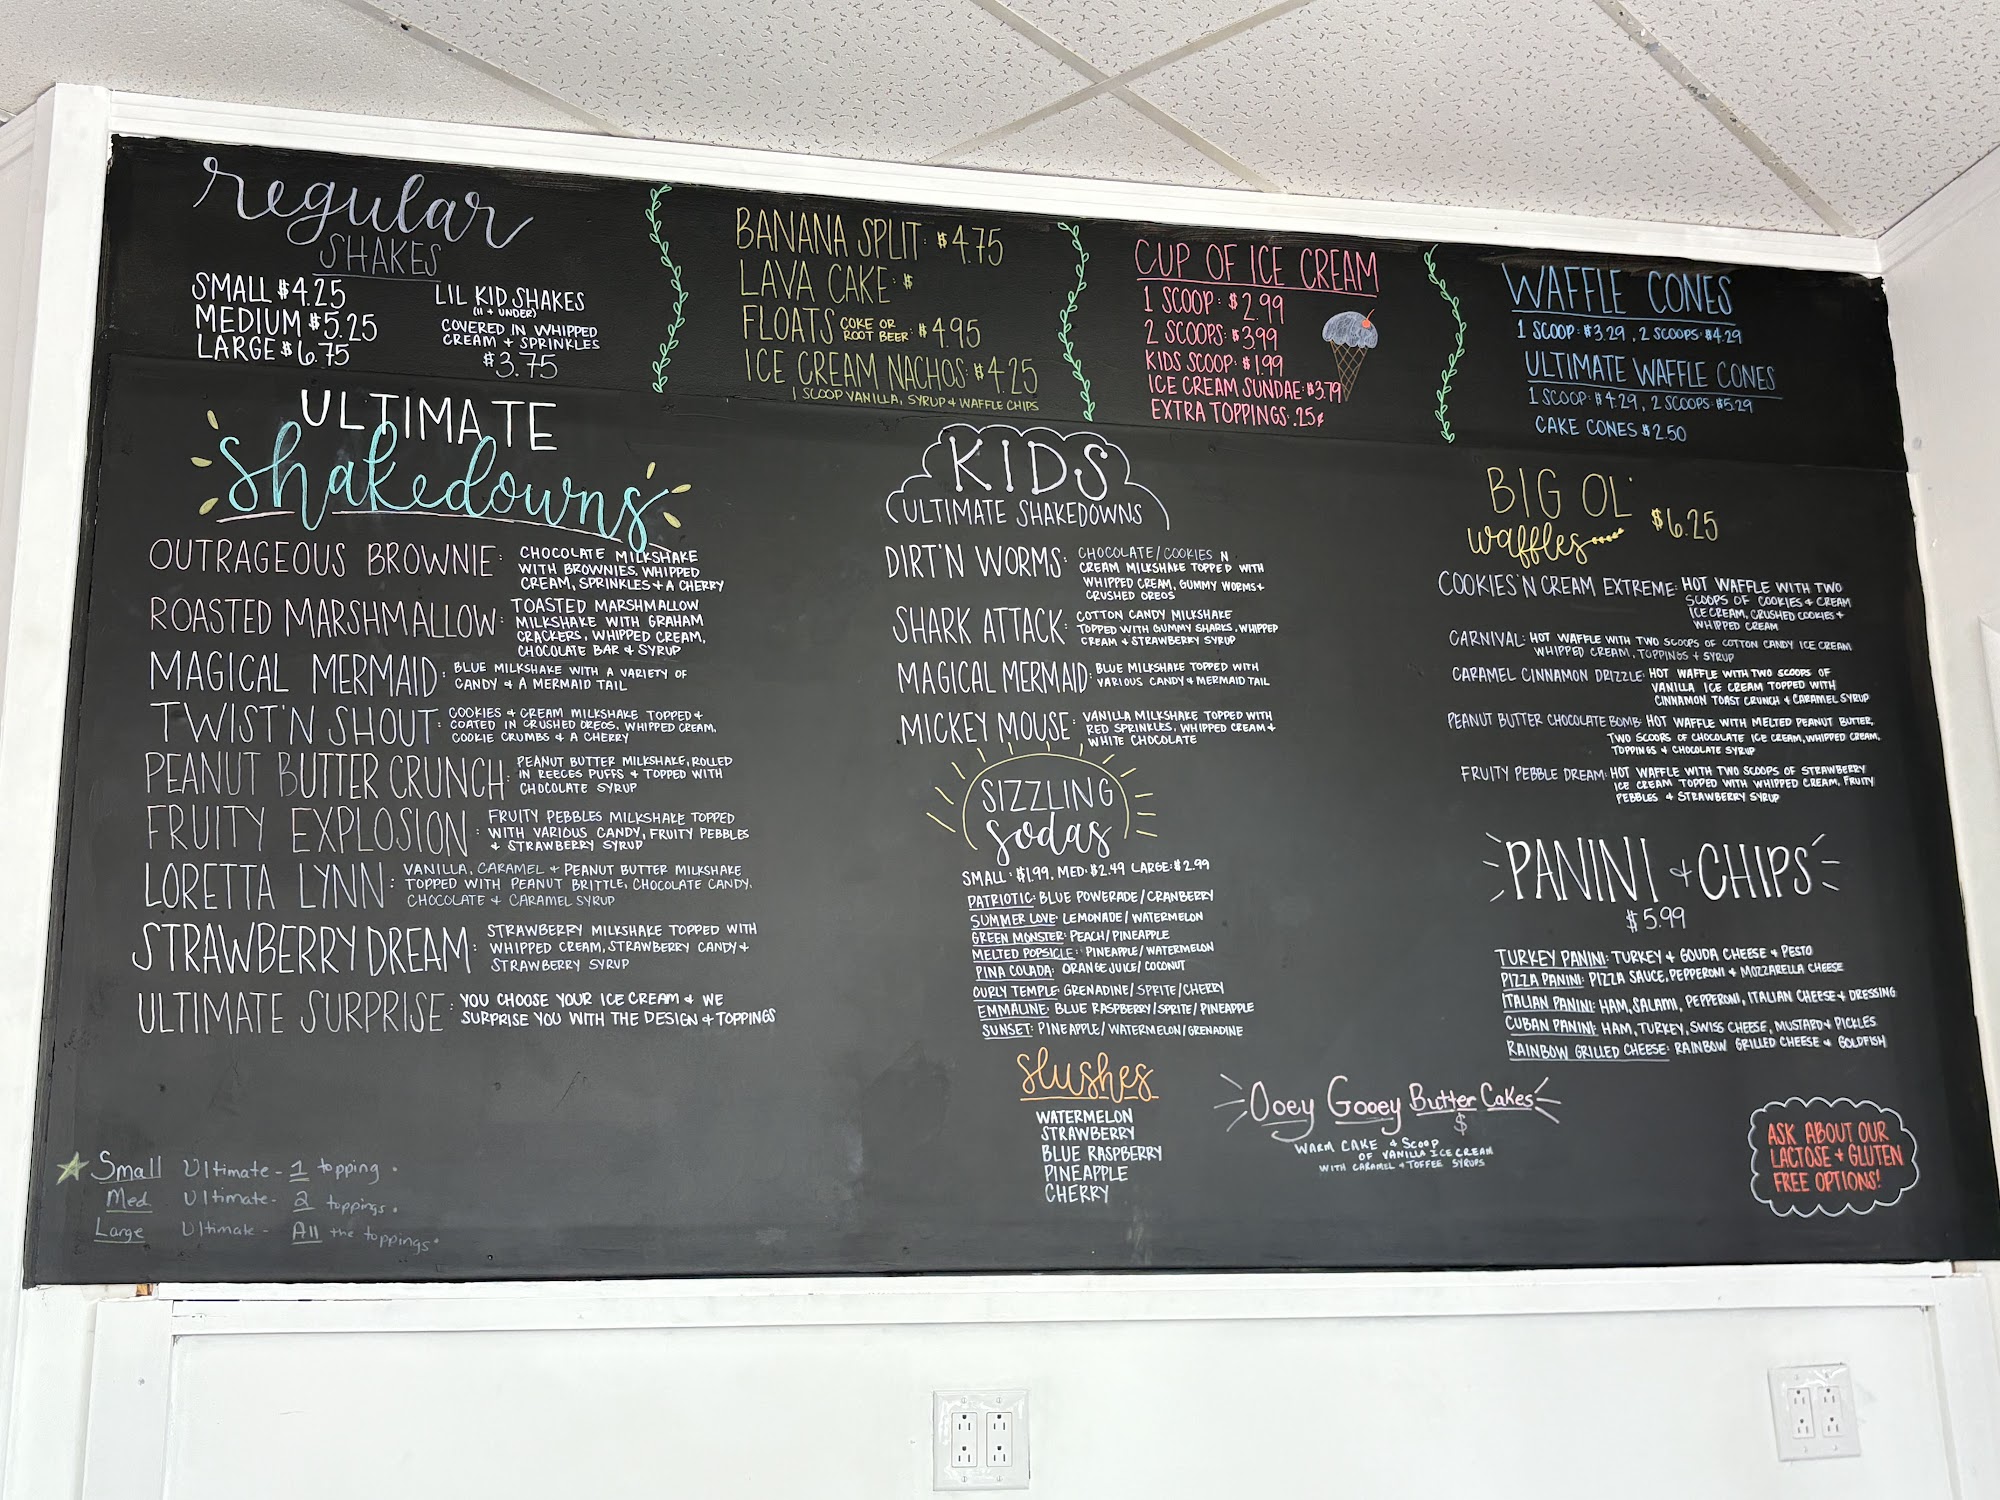 regular
SHAKES
SMALL $4.25
MEDIUM $5.25
LARGE $6.75
LIL KID SHAKES
(11 + UNDER)
COVERED IN WHIPPED
CREAM + SPRINKLES
$3.75
BANANA SPLIT: $4.75
LAVA CAKE: $
FLOATS COKE OR ROOT BEER: $4.95
ICE CREAM NACHOS: $4.25
1 SCOOP VANILLA, SYRUP & WAFFLE CHIPS
CUP OF ICE CREAM
1 SCOOP: $2.99
2 SCOOPS: $3.99
KIDS SCOOP: $1.99
ICE CREAM SUNDAE: $3.79
EXTRA TOPPINGS: .25¢
WAFFLE CONES
1 SCOOP: $3.29, 2 SCOOPS: $4.29
ULTIMATE WAFFLE CONES
1 SCOOP: $4.29, 2 SCOOPS: $5.29
CAKE CONES $2.50
ULTIMATE
shakedowns
OUTRAGEOUS BROWNIE: CHOCOLATE MILKSHAKE
WITH BROWNIES, WHIPPED
CREAM, SPRINKLES + A CHERRY
ROASTED MARSHMALLOW: TOASTED MARSHMALLOW
MILKSHAKE WITH GRAHAM
CRACKERS, WHIPPED CREAM,
CHOCOLATE BAR & SYRUP
MAGICAL MERMAID: BLUE MILKSHAKE WITH A VARIETY OF
CANDY & A MERMAID TAIL
TWIST'N SHOUT: COOKIES & CREAM MILKSHAKE TOPPED +
COATED IN CRUSHED OREOS, WHIPPED CREAM,
COOKIE CRUMBS & A CHERRY
PEANUT BUTTER CRUNCH: PEANUT BUTTER MILKSHAKE, ROLLED
IN REECES PUFFS + TOPPED WITH
CHOCOLATE SYRUP
FRUITY EXPLOSION: FRUITY PEBBLES MILKSHAKE TOPPED
WITH VARIOUS CANDY, FRUITY PEBBLES
& STRAWBERRY SYRUP
LORETTA LYNN: VANILLA, CARAMEL + PEANUT BUTTER MILKSHAKE
TOPPED WITH PEANUT BRITTLE, CHOCOLATE CANDY,
CHOCOLATE & CARAMEL SYRUP
STRAWBERRY DREAM: STRAWBERRY MILKSHAKE TOPPED WITH
WHIPPED CREAM, STRAWBERRY CANDY &
STRAWBERRY SYRUP
ULTIMATE SURPRISE: YOU CHOOSE YOUR ICE CREAM & WE
SURPRISE YOU WITH THE DESIGN + TOPPINGS
Small Ultimate - 1 topping.
Med Ultimate - 2 toppings.
Large Ultimate - All the toppings.
KIDS
ULTIMATE SHAKEDOWNS
DIRT'N WORMS: CHOCOLATE/COOKIES N
CREAM MILKSHAKE TOPPED WITH
WHIPPED CREAM, GUMMY WORMS +
CRUSHED OREOS
SHARK ATTACK: COTTON CANDY MILKSHAKE
TOPPED WITH GUMMY SHARKS, WHIPPED
CREAM & STRAWBERRY SYRUP
MAGICAL MERMAID: BLUE MILKSHAKE TOPPED WITH
VARIOUS CANDY & MERMAID TAIL
MICKEY MOUSE: VANILLA MILKSHAKE TOPPED WITH
RED SPRINKLES, WHIPPED CREAM &
WHITE CHOCOLATE
SIZZLING
sodas
SMALL: $1.99, MED: $2.49 LARGE: $2.99
PATRIOTIC: BLUE POWERADE/CRANBERRY
SUMMER LOVE: LEMONADE/WATERMELON
GREEN MONSTER: PEACH/PINEAPPLE
MELTED POPSICLE: PINEAPPLE/WATERMELON
PINA COLADA: ORANGE JUICE/COCONUT
CURLY TEMPLE: GRENADINE/SPRITE/CHERRY
EMMALINE: BLUE RASPBERRY/SPRITE/PINEAPPLE
SUNSET: PINEAPPLE/WATERMELON/GRENADINE
slushes
WATERMELON
STRAWBERRY
BLUE RASPBERRY
PINEAPPLE
CHERRY
Ooey Gooey Butter Cakes
$
WARM CAKE & SCOOP
OF VANILLA ICE CREAM
WITH CARAMEL & TOFFEE SYRUPS
BIG OL'
waffles $6.25
COOKIES'N CREAM EXTREME: HOT WAFFLE WITH TWO
SCOOPS OF COOKIES & CREAM
ICE CREAM, CRUSHED COOKIES &
WHIPPED CREAM
CARNIVAL: HOT WAFFLE WITH TWO SCOOPS OF COTTON CANDY ICE CREAM
WHIPPED CREAM, TOPPINGS & SYRUP
CARAMEL CINNAMON DRIZZLE: HOT WAFFLE WITH TWO SCOOPS OF
VANILLA ICE CREAM TOPPED WITH
CINNAMON TOAST CRUNCH & CARAMEL SYRUP
PEANUT BUTTER CHOCOLATE BOMB: HOT WAFFLE WITH MELTED PEANUT BUTTER,
TWO SCOOPS OF CHOCOLATE ICE CREAM, WHIPPED CREAM,
TOPPINGS & CHOCOLATE SYRUP
FRUITY PEBBLE DREAM: HOT WAFFLE WITH TWO SCOOPS OF STRAWBERRY
ICE CREAM TOPPED WITH WHIPPED CREAM, FRUITY
PEBBLES & STRAWBERRY SYRUP
PANINI & CHIPS
$5.99
TURKEY PANINI: TURKEY & GOUDA CHEESE & PESTO
PIZZA PANINI: PIZZA SAUCE, PEPPERONI & MOZZARELLA CHEESE
ITALIAN PANINI: HAM, SALAMI, PEPPERONI, ITALIAN CHEESE & DRESSING
CUBAN PANINI: HAM, TURKEY, SWISS CHEESE, MUSTARD & PICKLES
RAINBOW GRILLED CHEESE: RAINBOW GRILLED CHEESE & GOLDFISH
ASK ABOUT OUR
LACTOSE & GLUTEN
FREE OPTIONS!